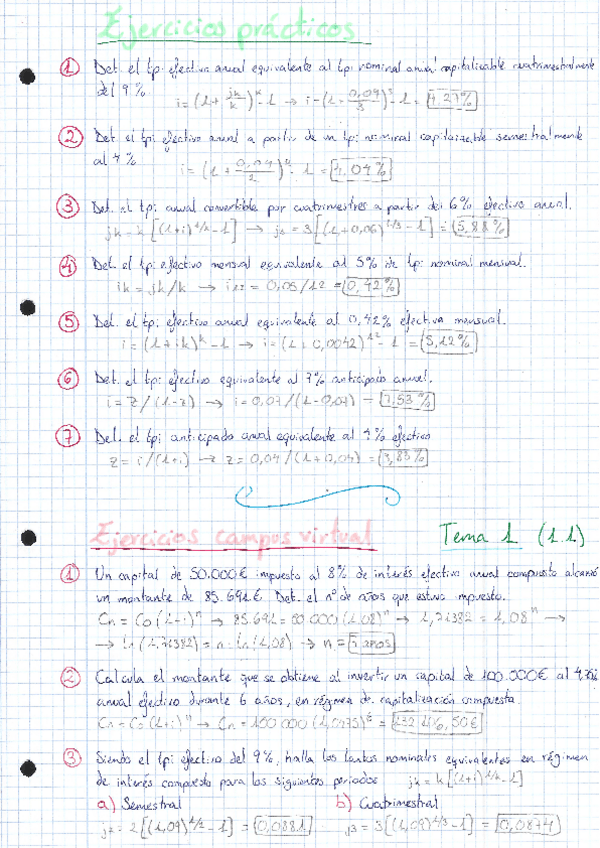 Ejercicios prácticos
① Det. el tpi efectivo anual equivalente al tpi nominal anual capitalizable cuatrimestralmente
del 9%.
i = (1 + jk/k)^k - 1 → i = (1 + 0,09/3)^3 - 1 =
② Det. el tpi efectivo anual a partir de un tpi nominal capitalizable semestralmente
al 4%
i = (1 + 0,04/2)^2 - 1 = 4,04%
③ Det. el tpi anual convertible por cuatrimestres a partir del 6% efectivo anual.
jk = k[(1+i)^1/k - 1] → j3 = 3[(1+0,06)^1/3 - 1] = 5,88%
④ Det. el tpi efectivo mensual equivalente al 5% de tpi nominal mensual.
ik = jk/k → i12 = 0,05/12 = 0,42%
⑤ Det. el tpi efectivo anual equivalente al 0,42% efectivo mensual.
i = (1+ik)^k - 1 → i = (1+0,0042)^12 - 1 = 5,12%
⑥ Det. el tpi efectivo equivalente al 7% anticipado anual.
i = z/(1-z) → i = 0,07/(1-0,07) = 7,53%
⑦ Det. el tpi anticipado anual equivalente al 4% efectivo
z = i/(1+i) → z = 0,04/(1+0,04) = 3,85%
Ejercicios campus virtual Tema 1 (1.1)
① Un capital de 50.000€ impuesto al 8% de interés efectivo anual compuesto alcanzó
un montante de 85.691€. Det. el nº de años que estuvo impuesto.
Cn = Co(1+i)^n → 85.691 = 50.000(1,08)^n → 1,71382 = 1,08^n →
→ ln(1,71382) = n·ln(1,08) → n = 7 años
② Calcula el montante que se obtiene al invertir un capital de 100.000€ al
anual efectivo durante 6 años, en régimen de capitalización compuesta.
Cn = Co(1+i)^n → Cn = 100.000(1,0475)^6 =
③ Siendo el tpi efectivo del 9%, halla los tantos nominales equivalentes en régimen
de interés compuesto para los siguientes periodos jk = k[(1+i)^1/k - 1]
a) Semestral b) Cuatrimestral
j2 = 2[(1,09)^1/2 - 1] = 0,0881 j3 = 3[(1,09)^1/3 - 1] = 0,0874